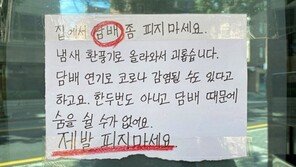 집에서 담배 좀 피지마세요.
냄새 환풍기로 올라와서 괴롭습니다.
담배 연기로 코로나 감염될 수도 있다고
하고요. 한두번도 아니고 담배 때문에
숨을 쉴 수가 없어요.
제발 피지마세요